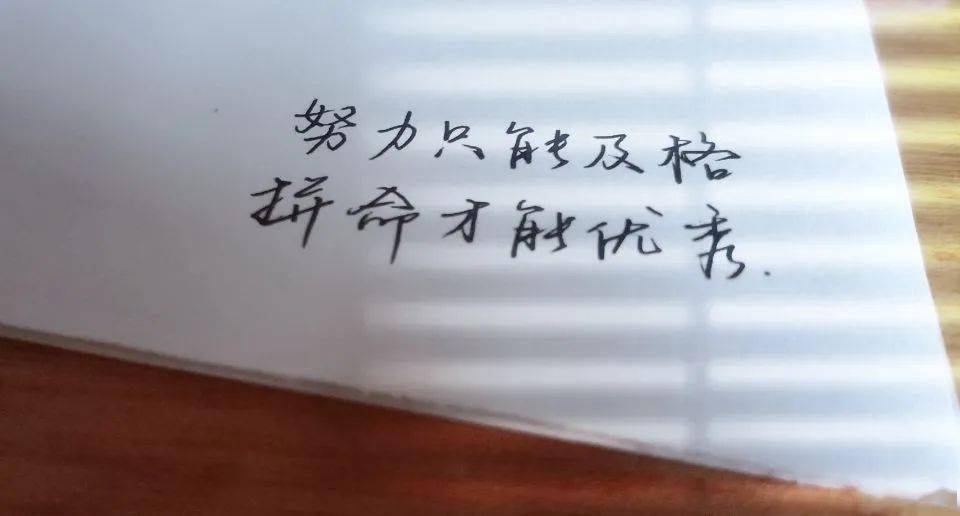 努力只能及格
拼命才能优秀.